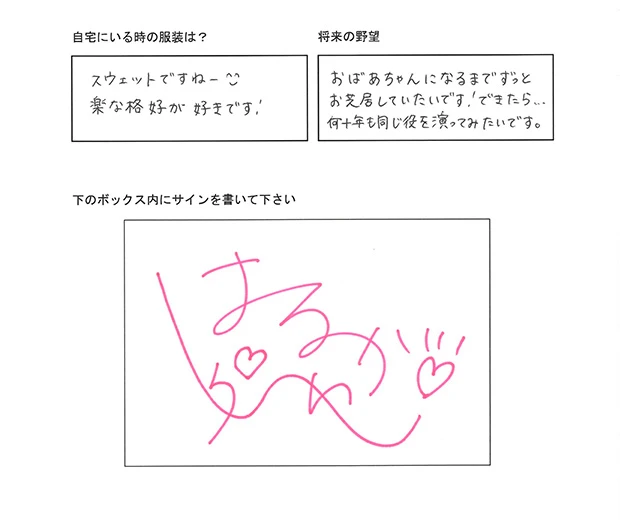 自宅にいる時の服装は？
スウェットですねー
楽な格好が好きです!
将来の野望
おばあちゃんになるまでずっと
お芝居していたいです!できたら...
何十年も同じ役を演ってみたいです。
下のボックス内にサインを書いて下さい
はるか